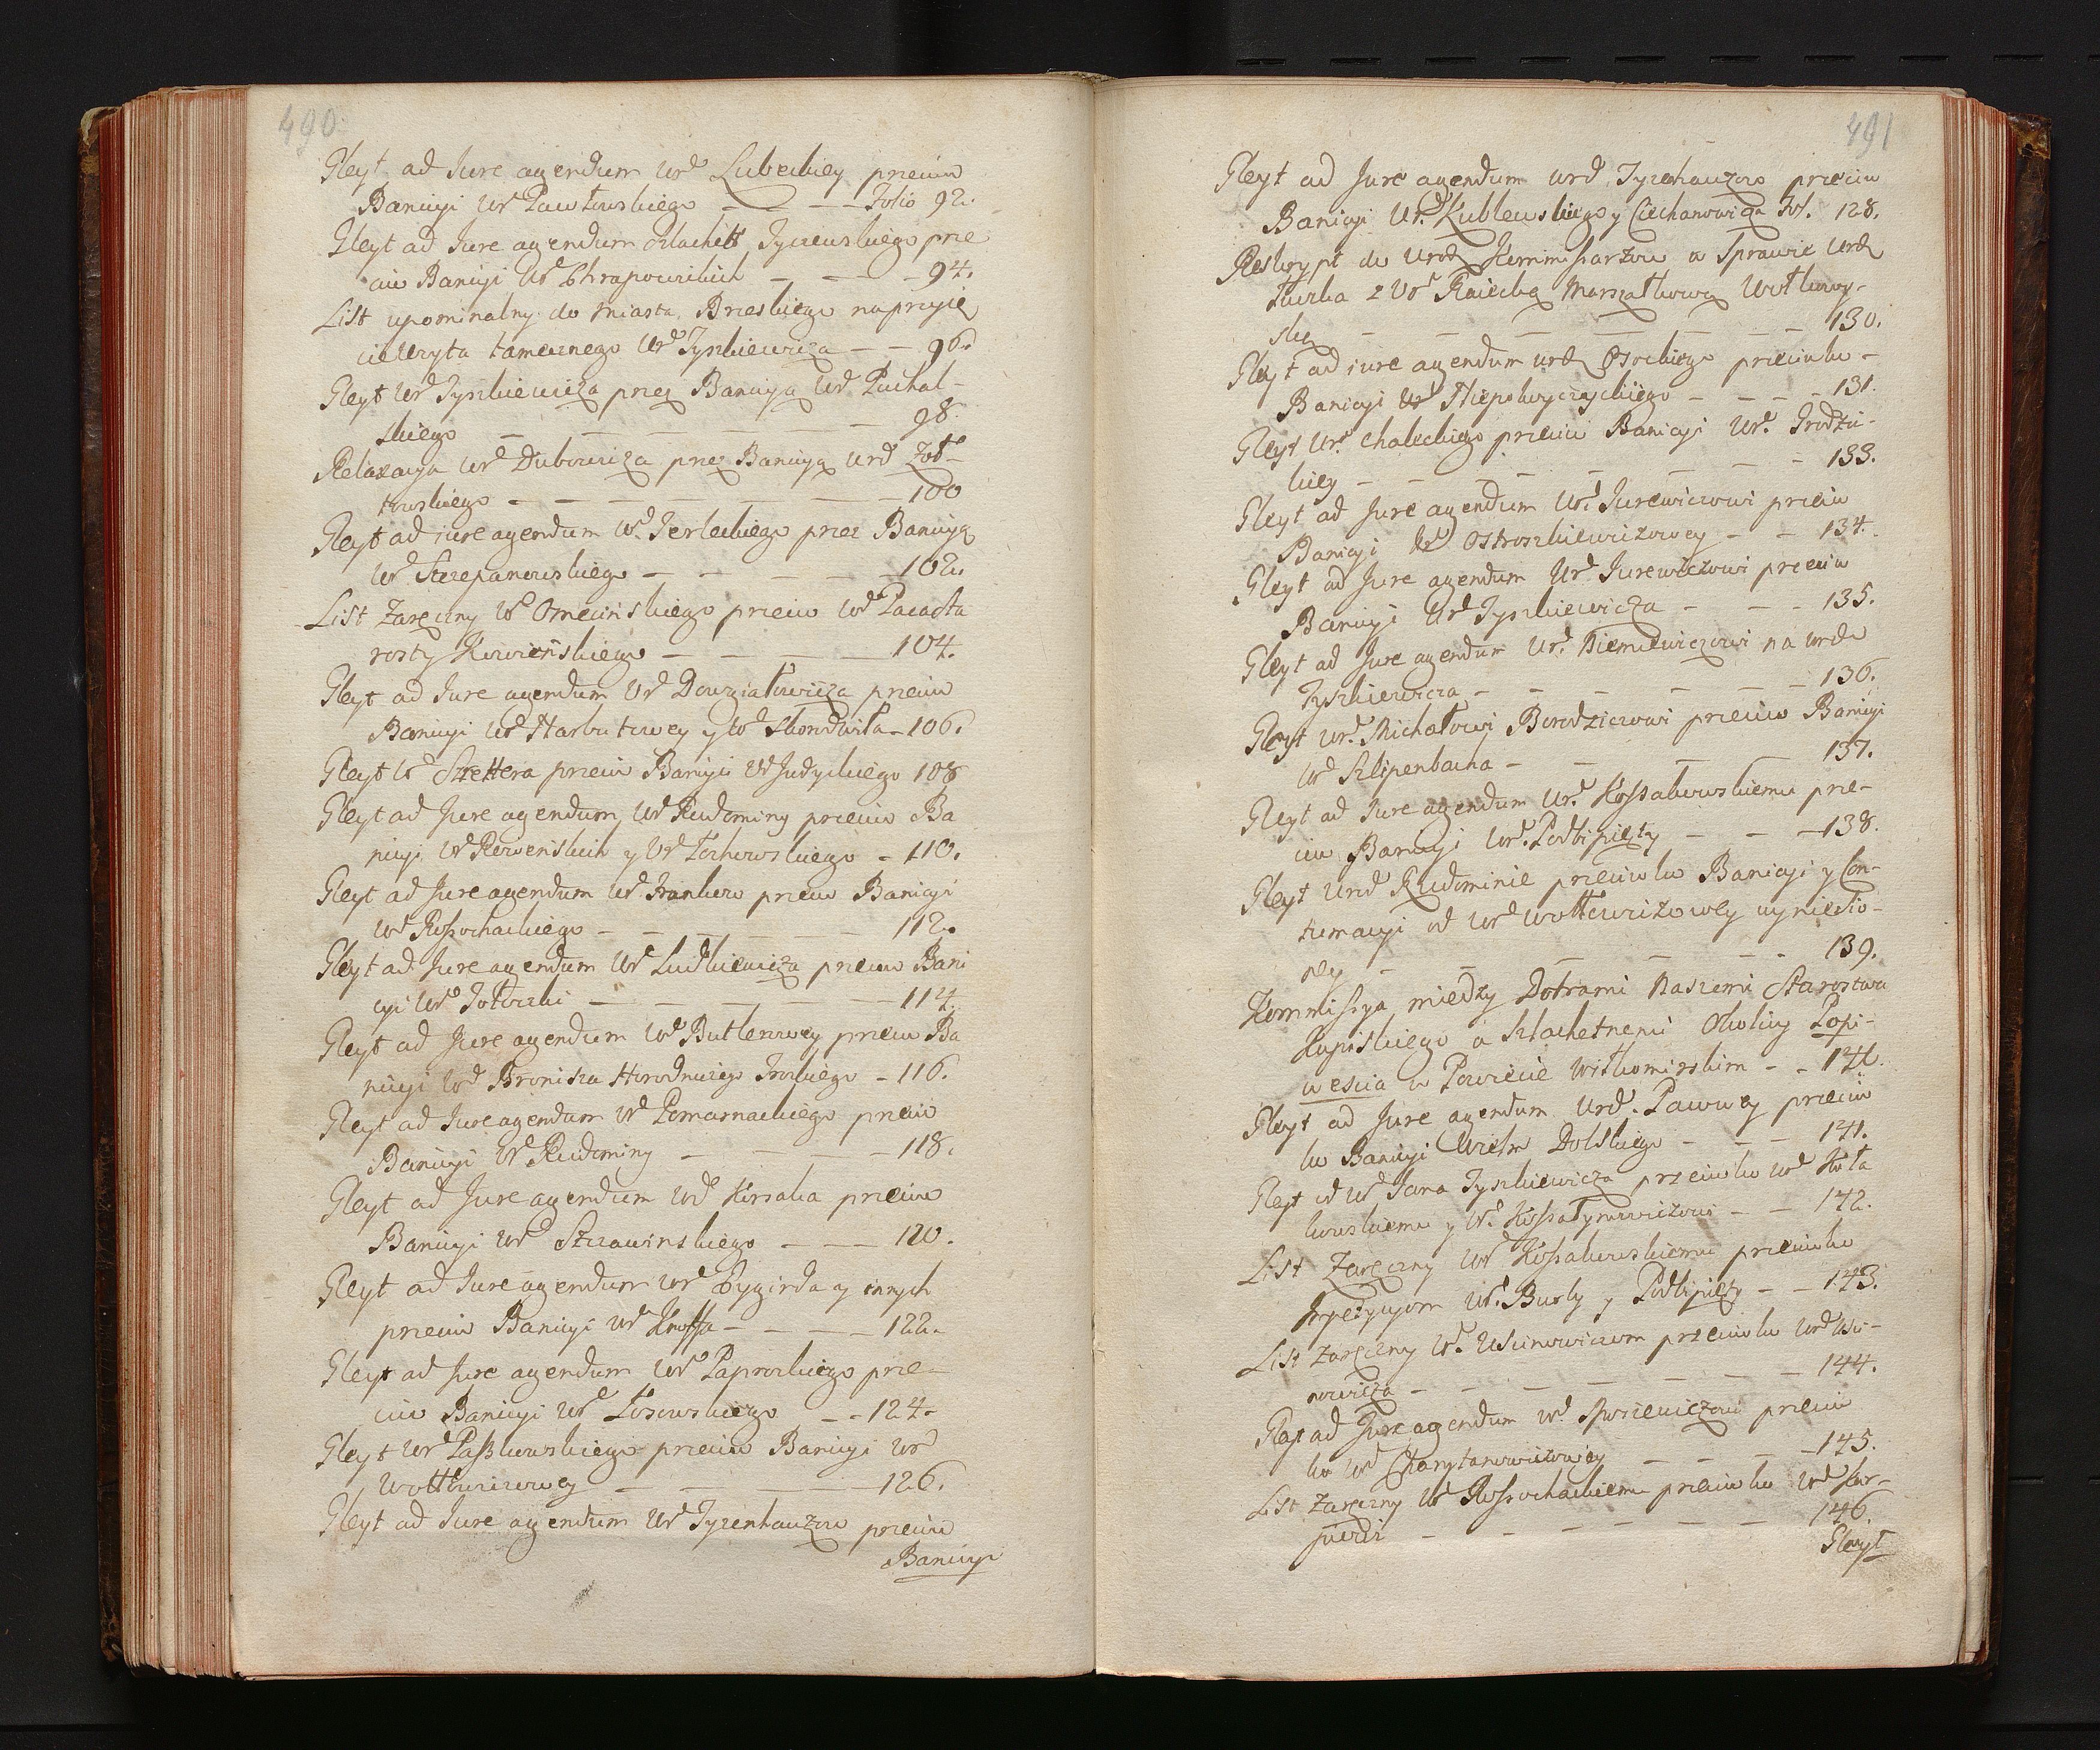 490.
Gleyt ad Jure agendum Urd Lubeckiey przeciw
Banicyi Ur Pawłowskiego — — — Folio 92.
Gleyt ad Jure agendum szlachett Tyczewskiego prze
ciw Banicyi Ur Chrapowickich — — — 94.
List upominalny do Miasta Brzeskiego na przyię
cie Wuyta tamecznego Urd Tyszkiewicza — — 96.
Gleyt Ur Tyszkiewicza przez Banicyą Ur Puchal-
skiego — — — — — — 98.
Relaxacya Ur Dubowicza przez Banicyą Urd Żoł-
kowskiego — — — — — 100
Gleyt ad jure agendum Ur Terleckiego przez Banicyą
Ur Szczepanowskiego — — — 102.
List Zaręczny Ur Omecińskiego przeciw Ur Paca sta
rosty Kowieńskiego — — — 104.
Gleyt ad Jure agendum Ur Dowgiałowicza przeciw
Banicyi Ur Harbutowey y Ur Skordwiła — 106.
Gleyt Ur Szettera przeciw Banicyi Ur Judyckiego 108
Gleyt ad Jure agendum Ur Rudominy przeciw Ba
nicyi Ur Rewenskich y Ur Łochowskiego — 110.
Gleyt ad Jure agendum Ur Frankow przeciw Banicyi
Ur Rossochackiego — — — — 112.
Gleyt ad Jure agendum Ur Ludkiewicza przeciw Bani
cyi Ur Jotoczki — — — — 114.
Gleyt ad Jure agendum Ur Butlerowey przeciw Ba
nicyi Ur Bronisza Horodniczego Trockiego — 116.
Gleyt ad Jure agendum Ur Pomarnackiego przeciw
Banicyi Ur Rudominy — — — — 118.
Gleyt ad Jure agendum Urd Kirsaka przeciw
Banicyi Ur Szczawinskiego — — — 120.
Gleyt ad Jure agendum Ur Dygirda y innych
przeciw Banicyi Ur Knoffa — — — 122.
Gleyt ad Jure agendum Ur Paprockiego prze-
ciw Banicyi Ur Łosowskiego — — 124.
Gleyt Ur Paszkowskiego przeciw Banicyi Ur
Wottkiewiczowey — — — — 126.
Gleyt ad Jure agendum Ur Tyzenhauzow przeciw
Banicyi
491
Gleyt ad Jure agendum Urd Tyzenhauzow przeciw
Banicyi Ur Kublewskiego y Ciechanowicza Fol. 128.
Reskrypt do Urod Kommissarzow w Sprawie Urd
z Ur Marszałkową Wołkowy-
ską — — — — — — 130.
Gleyt ad jure agendum Urd Osockiego przeciwko
Banicyi Ur Niepokoyczyckiego — — — 131.
Gleyt Ur Chaleckiego przeciw Banicyi Ur Grodzic-
kiey — — — — — — 133.
Gleyt ad Jure agendum Ur Jurewiczowi przeciw
Banicyi Ur Ostroszkiewiczowey — — 134.
Gleyt ad Jure agendum Ur Jurewiczowi przeciw
Banicyi Ur Tyszkiewicza — — — 135.
Gleyt ad Jure agendum Ur Niemcewiczowi na Urda
Tyszkiewicza — — — — — 136.
Gleyt Ur Michałowi Borodziczowi przeciw Banicyi
Ur Szlipenbacha — — — — 137.
Gleyt ad Jure agendum Ur Kossakowskiemu prze-
ciw Banicyi Ur Podbipięty — — — 138.
Gleyt Urd Rudominie przeciwko Banicyi y Con-
tumacyi od Ur Wottowiczowey wyniesio-
ney — — — — — 139.
Kommissya między Dobrami Naszemi Starostwa
Kupiskiego a Szlachetnemi Okolicy Popi-
wescia w Powiecie Wiłkomirskim — — 140.
Gleyt ad Jure agendum Urd Pacowey przeciw
ko Banicyi Wielm Dolskiego — — — 141.
Gleyt od Ur Jana Tyszkiewicza przeciwko Ur Koła
kowskiemu y Ur Kossatynowiczowi — — 142.
List Zaręczny Ur Kossakowskiemu przeciwko
Impetycyom Ur Burby y Podbipięty — — 143.
List zaręczny Ur Uscinowiczom przeciwko Ur Usci-
nowicza — — — — — — — 144.
Gleyt ad Jure agendum Ur przeciw
ko Ur Charytanowiczowey — — — 145.
List Zaręczny Ur Rossochackiemu przeciwko Ur Kor-
— — — — — — 146.
Gleyt